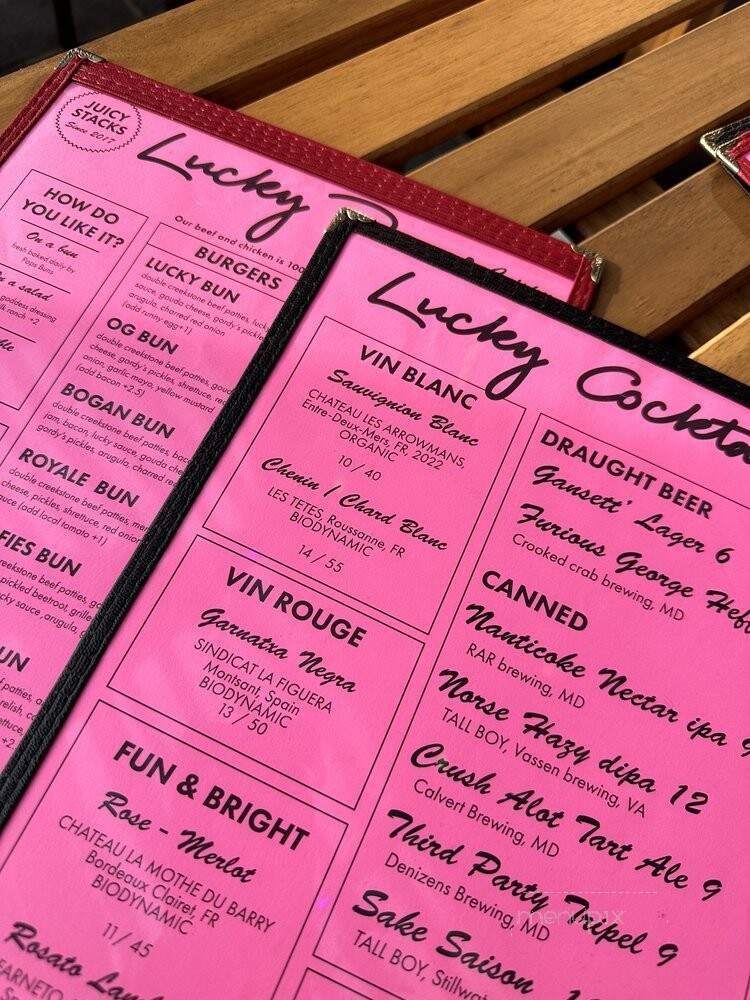 JUICY
STACKS
Since 2017
Lucky
Our beef and chicken is 100
HOW DO
YOU LIKE IT?
On a bun
fresh baked daily by
Pops Buns
a salad
goddess dressing
ranch +2
BURGERS
LUCKY BUN
double creekstone beef patties, lucky
sauce, gouda cheese, gordy's pickles,
arugula, charred red onion
(add runny-egg +1)
OG BUN
double creekstone beef patties, gouda
cheese, gordy's pickles, shrettuce, red
onion, garlic mayo, yellow mustard
(add bacon +2.5)
BOGAN BUN
double creekstone beef patties, bacon
jam, bacon, lucky sauce, gouda
gordy's pickles, arugula, charred red
ROYALE BUN
double creekstone beef patties,
cheese, pickles, shrettuce, red onion
sauce (add local tomato +1)
FIES BUN
double creekstone beef patties,
pickled beetroot,
lucky sauce, arugula,
UN
patties,
relish,
+2
Lucky Cockta
VIN BLANC
Sauvignion Blanc
CHATEAU LES ARROWMANS,
Entre-Deux-Mers, FR, 2022
ORGANIC
10 / 40
Chenin / Chard Blanc
LES TETES, Roussanne, FR
BIODYNAMIC
14 / 55
VIN ROUGE
Garnatxa Negra
SINDICAT LA FIGUERA
Montsant, Spain
BIODYNAMIC
13 / 50
FUN & BRIGHT
Rose - Merlot
CHATEAU LA MOTHE DU BARRY
Bordeaux Clairet, FR
BIODYNAMIC
11 / 45
Rosato
FARNETO
DRAUGHT BEER
Gansett' Lager 6
Furious George Hef
Crooked crab brewing, MD
CANNED
Nanticoke Nectar ipa 9
RAR brewing, MD
Norse Hazy dipa 12
TALL BOY, Vassen brewing, VA
Crush Alot Tart Ale 9
Calvert Brewing, MD
Third Party Tripel 9
Denizens Brewing, MD
Sake Saison
TALL BOY, Stillwat
menupix